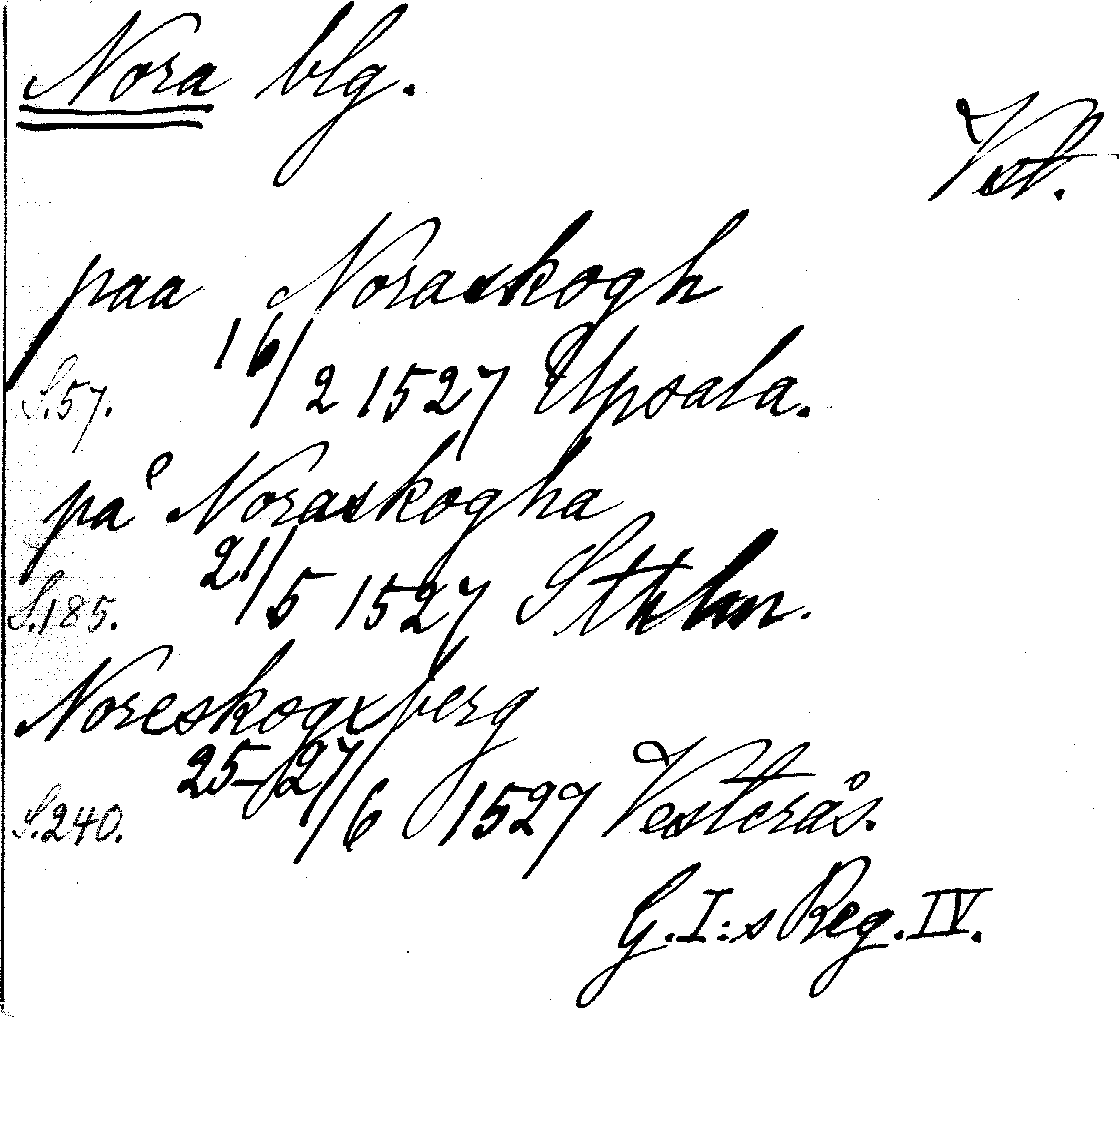 Nora blg.
Vstl.
paa Noraskogh
S.57. 16/2 1527 Upsala.
på Noraskogha
S.185. 21/5 1527 Sthlm.
Noreskogxberg
S.240. 25-27/6 1527 Vesterås.
G.I:s Reg. IV.